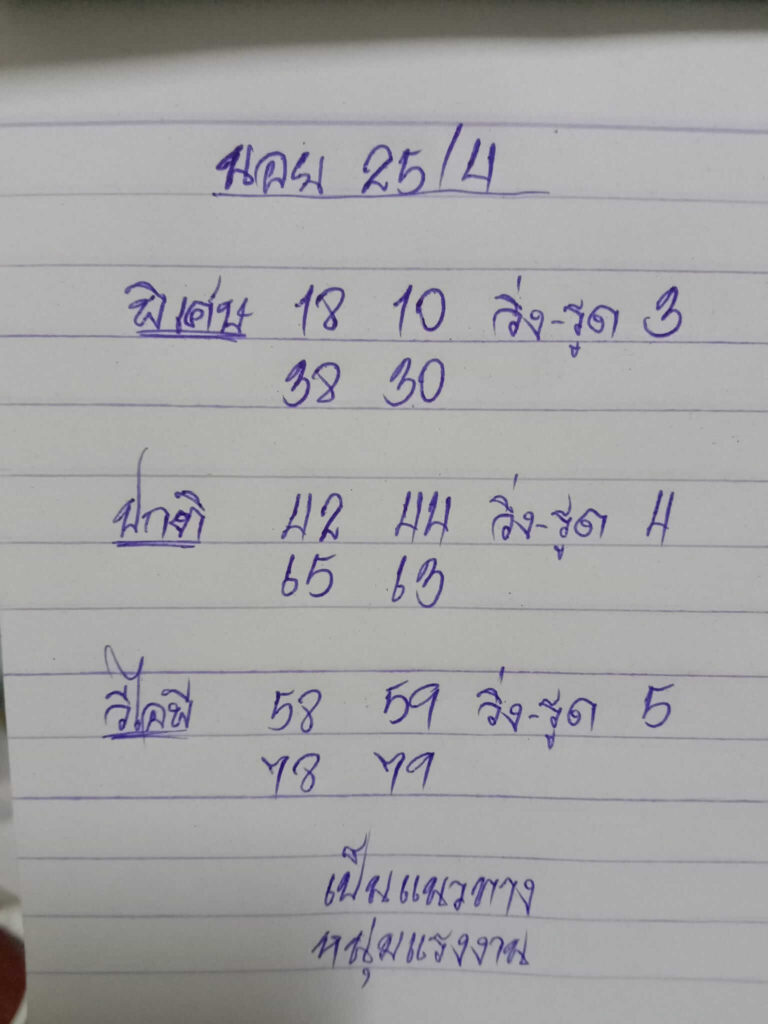 นอย 25/4
พิเศษ 18 10 วิ่ง-รูด 3
38 30
ปกติ 42 44 วิ่ง-รูด 4
65 63
วีไอพี 58 59 วิ่ง-รูด 5
78 79
เป็นแนวทาง
หนุ่มแรงงาน